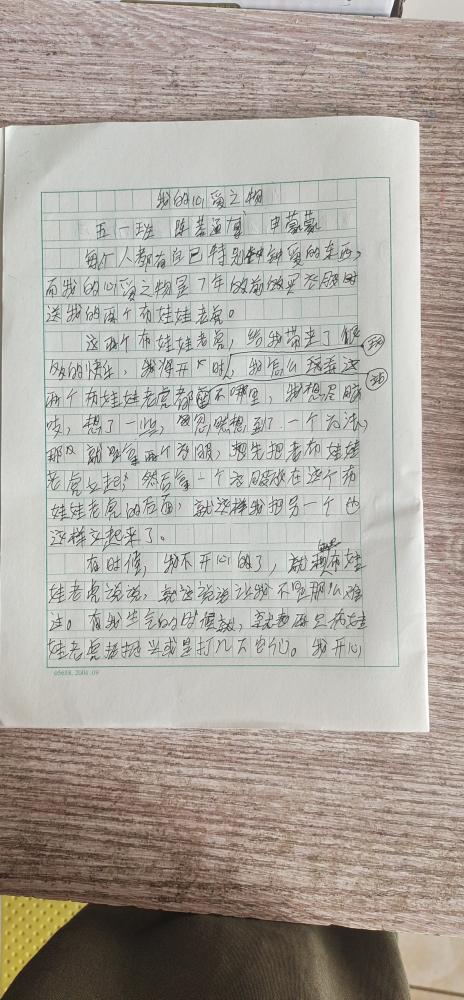 我的心爱之物
五一班 陈 申蒙蒙
每个人都有自己特别钟爱的东西,
而我的心爱之物是7年级前做买衣服时
送我的两个布娃娃老虎。
这两个布娃娃老虎,给我带来了
的快乐,我得开心时,我怎么玩弄这 玩
两个布娃娃老虎都 不哪里,我想尽脑 3站
吱,想了一些,忽然想到了一个方法,
那 就是拿两个衣服,想先把老布娃娃
老虎立起,然后拿一个衣服放在这个布
娃娃老虎的后面,就这样我把另一个也
这样立起来了。
有时候,我不开心的了,就和布娃
娃老虎说说,就这说说让我不是那么难
过。有我生气的时候就, 布娃
娃老虎 或是打几下它们。我开心
05658.2004.09